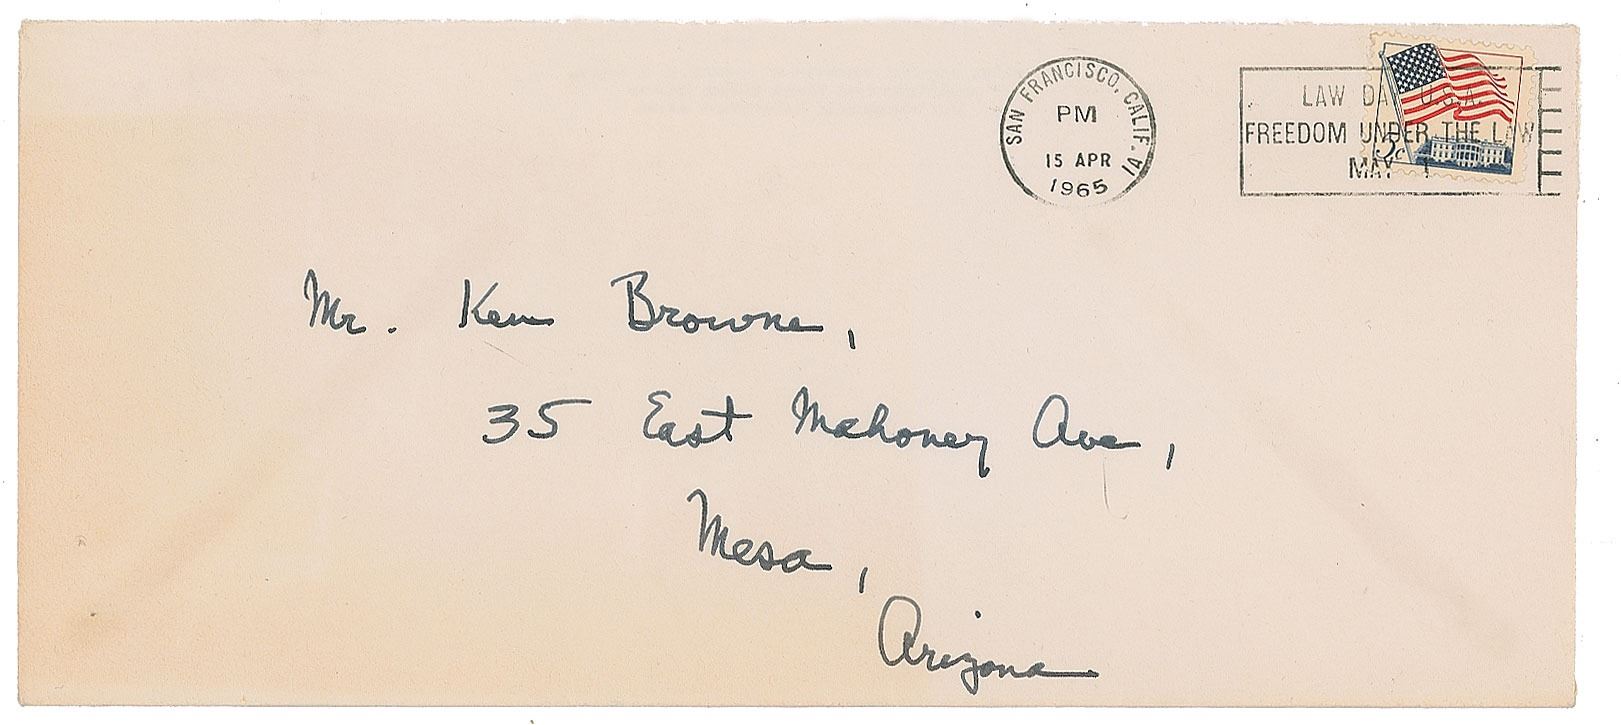 SAN FRANCISCO, CALIF. 141
PM
15 APR
1965
LAW DA U.S.A.
FREEDOM UNDER THE LAW
MAY 1
5c
Mr. Ken Browne,
35 East Mahoney Ave,
Mesa,
Arizona